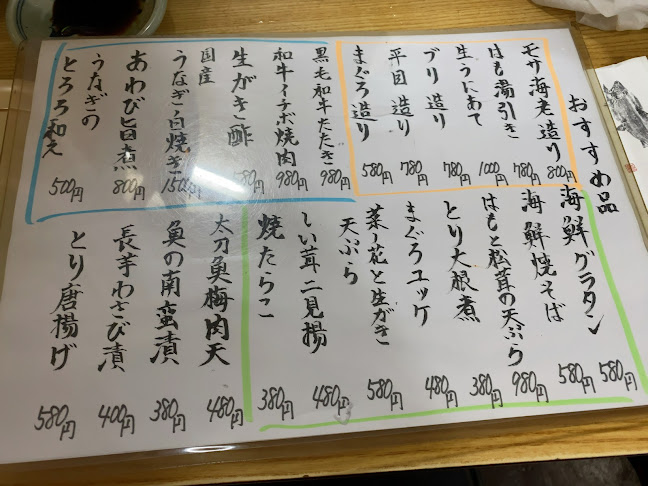 おすすめ品
モサ海老造り 800円
はも湯引き 780円
生うにあて 1000円
ブリ造り 780円
平目造り 780円
まぐろ造り 580円
黒毛和牛たたき 980円
和牛イチボ焼肉 980円
生がき酢 580円
国産
うなぎ白焼き 1500円
あわび旨煮 800円
うなぎの
とろろ和え 500円
海鮮グラタン 580円
海鮮焼そば 580円
はもと松茸の天ぷら 980円
とり大根煮 380円
まぐろユッケ 480円
菜ノ花と生がき
天ぷら 580円
しい茸二見揚 480円
焼たらこ 380円
太刀魚梅肉天 480円
魚の南蛮漬 380円
長芋わさび漬 400円
とり唐揚げ 580円